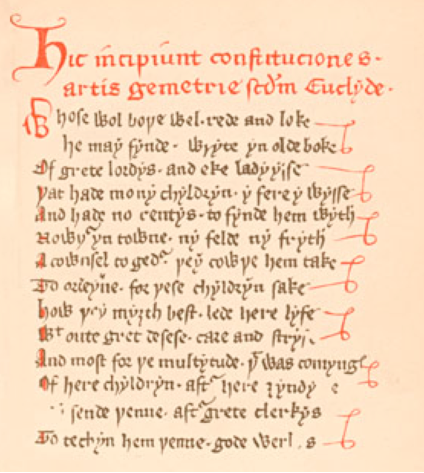 Hic incipiunt constituciones
artis gemetrie scdm Euclyde.
Whose wol boþe wel rede and loke
he may fynde wryte yn olde boke
Of grete lordys and eke ladyysse
Þat hade mony chyldryn y fere y wysse
And hade no rentys to fynde hem wyth
Nowþr yn towne ny felde ny fryth
A cownsel togedr þey cowþe hem take
To ordeyne for þese chyldryn sake
How þey myȝth best lede here lyfe
Wt oute gret desese care and stryf
And most for þe multytude þt was comyng
Of here chyldryn aftr here ȝyndy
sende þenne aftr grete clerkys
To techyn hem þenne gode werkys